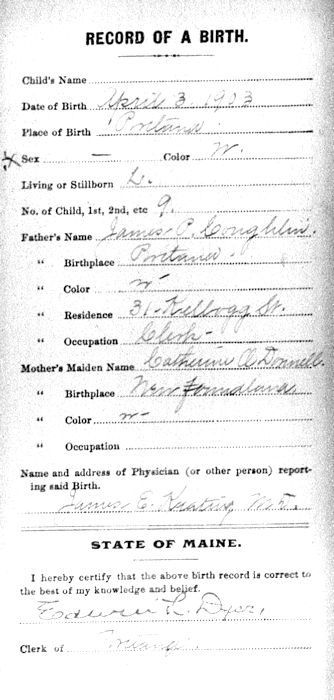 RECORD OF A BIRTH.
Child's Name
Date of Birth April 3, 1903
Place of Birth Portland
Sex — Color W.
Living or Stillborn L.
No. of Child, 1st, 2nd, etc 9.
Father's Name James P. Coughlin.
" Birthplace Portland.
" Color W
" Residence 31 Kellogg St.
" Occupation Clerk
Mother's Maiden Name Catherine O'Donnell
" Birthplace New Foundland
" Color W
" Occupation
Name and address of Physician (or other person) report-
ing said Birth.
James E. Keating, M.D.
STATE OF MAINE.
I hereby certify that the above birth record is correct to
the best of my knowledge and belief.
Edwin L. Dyer,
Clerk of Portland.